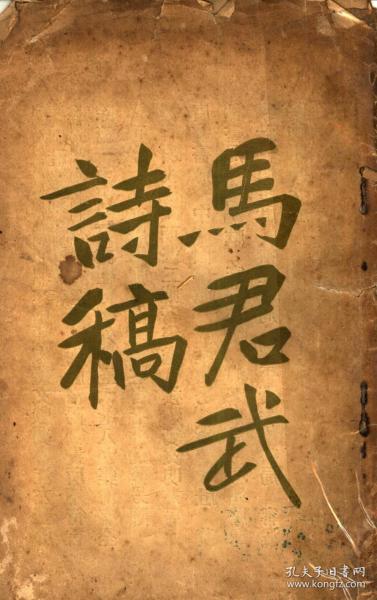 馬君武
詩稿
孔夫子旧书网
www.kongfz.com